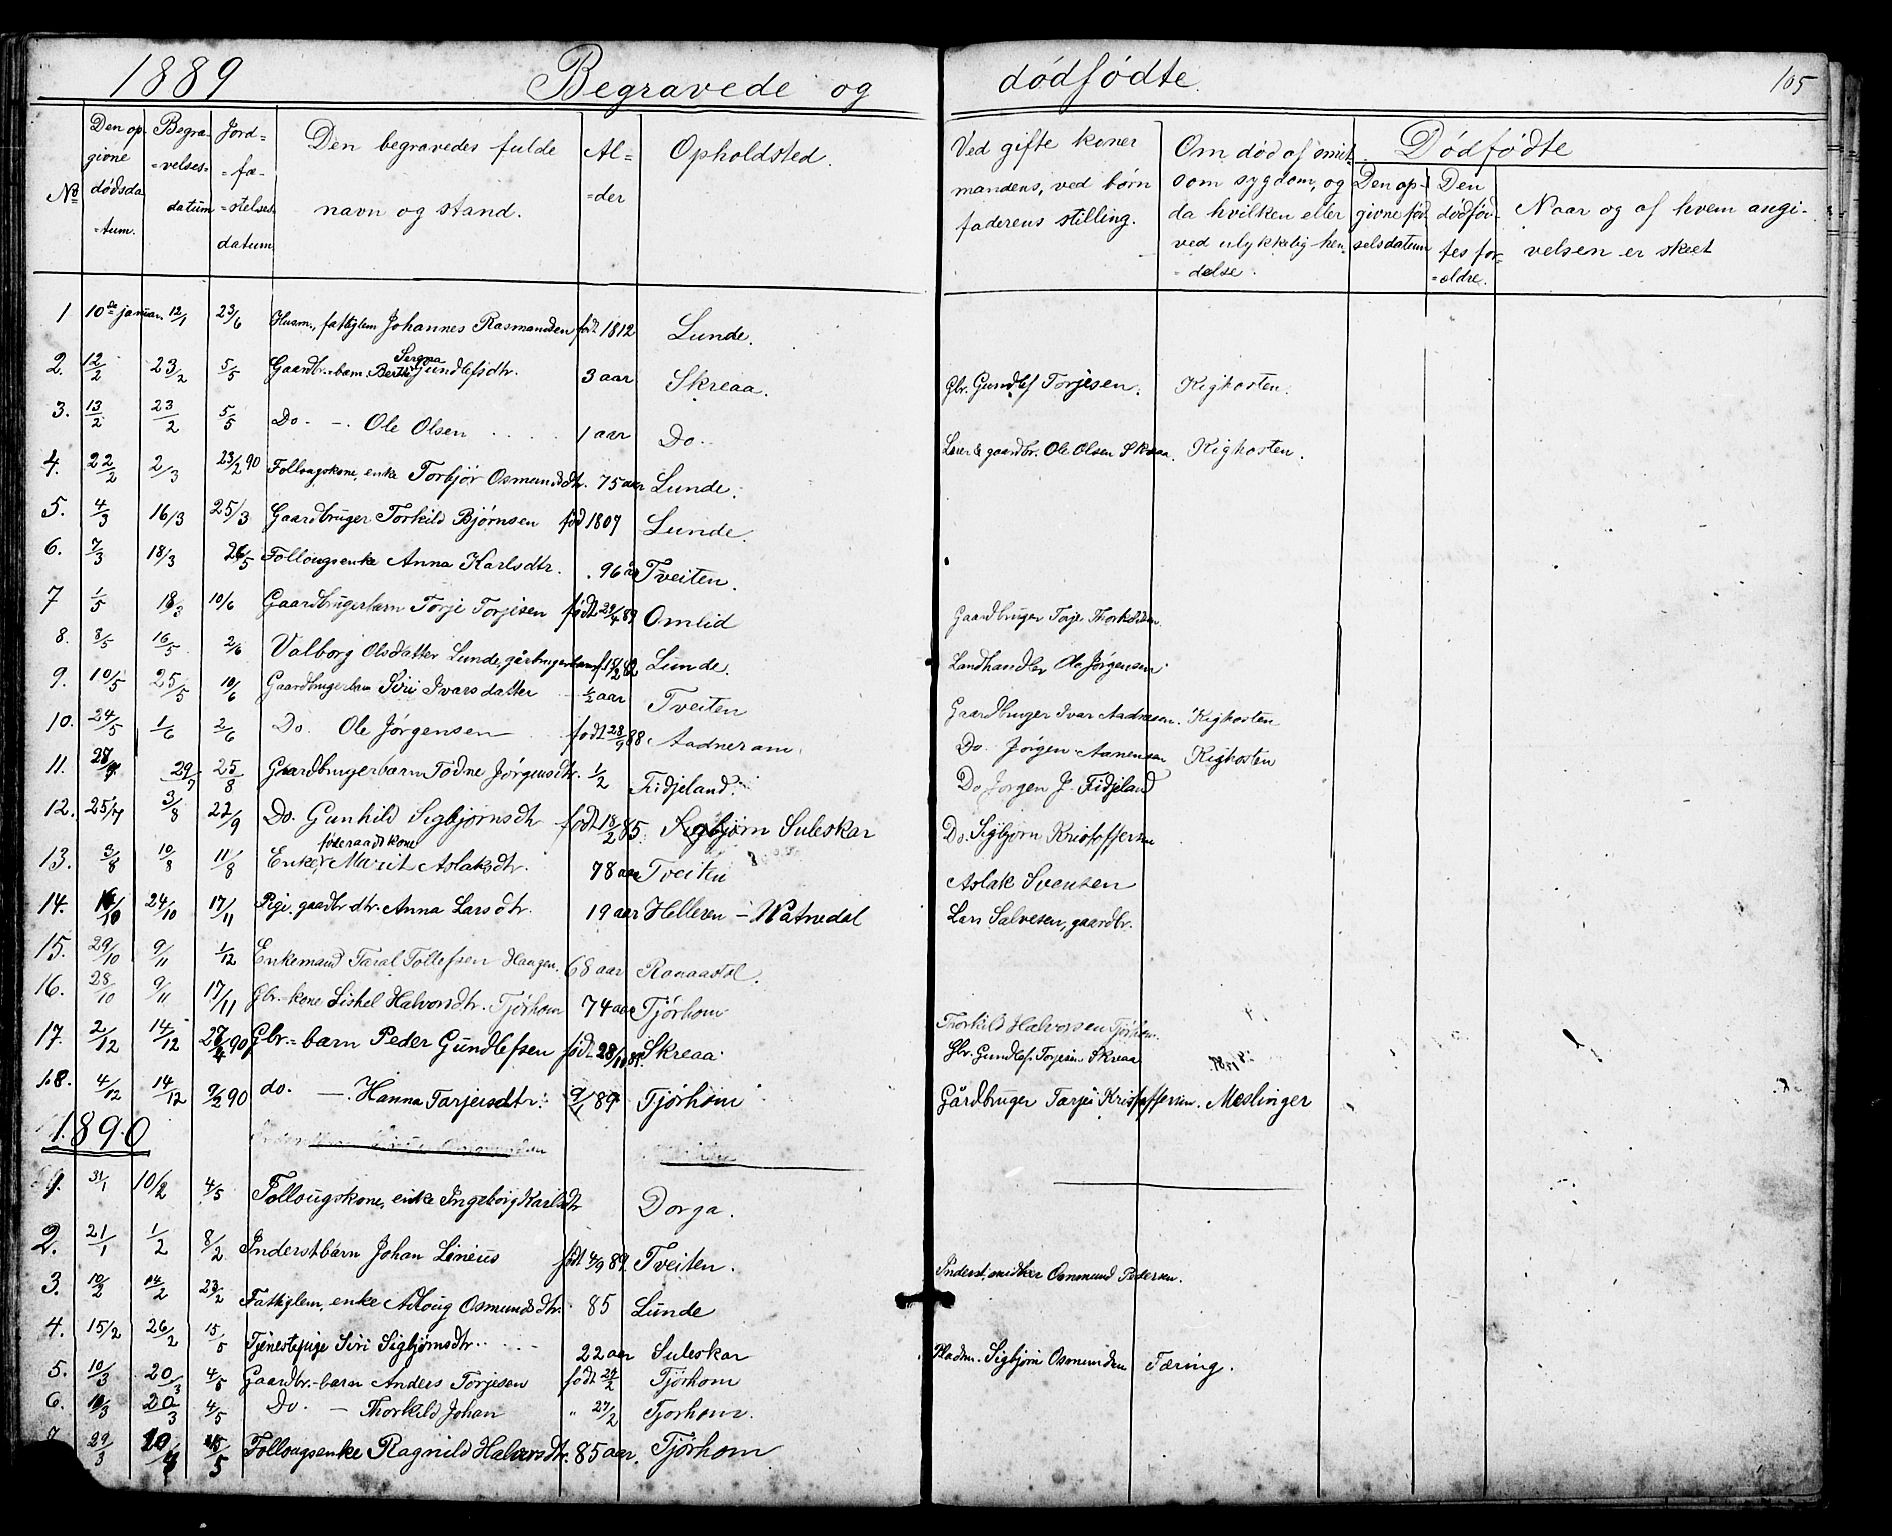 1889 Begravede og dødfødte. 105
No Den opgivne dødsda=tum. Begra=velses=datum Jord=fæ=stelses=datum Den begravedes fulde navn og stand. Al=der Opholdsted. Ved gifte koner mandens, ved børn faderens stilling. Om død af smitsom sygdom, og da hvilken eller ved ulykkelig hen=delse. Dødfødte Den opgivne fødselsdatum Den dødfødtes for=ældre. Naar og af hvem angivelsen er skeet
1 10de januar. 12/1 23/6 Husm., fattiglem Johannes Rasmussen født 1812 Lunde.
2. 12/2 23/2 5/5 Gaardbr.-barn Serena Gundlefsdtr. 3 aar Skreaa. Gbr. Gundlef Torjesen. Kighosten.
3. 13/2 23/2 5/5 Do. — Ole Olsen 1 aar Do. gaardbr. Ole Olsen Skreaa. Kighosten.
4. 22/2 2/3 23/2 90 Follougskone, enke Torbjør Osmundsdtr. 75 aar Lunde.
5. 4/3 16/3 25/3 Gaardbruger Torkild Bjørnsen fød 1807 Lunde.
6. 7/3 18/3 26/5 Follougsenke Anna Karlsdtr. 96 år Tveiten.
7 1/5 18/3 10/6 Gaardbrugerbarn Torje Torjesen født 29/4 89 Omlid Gaardbruger Torje Thorkildsen.
8. 8/5 16/5 2/6 Valborg Olsdatter Lunde, gårbrugerbarn f. 18/2 82 Lunde. Landhandler Ole Jørgensen.
9. 10/5 25/5 10/6 Gaardbrugerbarn Siri Ivarsdatter 1/2 aar Tveiten Gaardbruger Ivar Aadnesen. Kighosten
10. 24/5 1/6 2/6 Do. Ole Jørgensen født 28/9 88 Aadneram. Do. Jørgen Aanensen Kighosten
11. 29/7 25/8 Gaardbrugerbarn Todne Jørgensdtr. 1/2 Fidjeland. Do Jørgen J. Fidjeland
12. 25/7 3/8 22/9 Do. Gunhild Sigbjørnsdtr født 18/2 85. Sigbjørn Suleskar Do. Sigbjørn Kristoffersen
13. 3/8 10/8 11/8 Enke, føderaadskone Marit Aslaksdtr. 78 aar Tveiten Aslak Svensen
14. 24/10 17/11 Pige, gaardbr. dtr. Anna Larsdtr. 19 aar Helleren – Watnedal Lars Salvesen, gaardbr.
15. 29/10 9/11 1/12 Enkemand Taral Tollefsen Haugen. 68 aar
16. 28/10 9/11 17/11 Gbr.-kone Sishel Halvorsdtr. Tjørhom 74 aar Tjørhom Thorkild Halvorsen Tjørhom.
17. 2/12 14/12 27/4 90 Gbr.-barn Peder Gundlefsen født 28/10 89. Skreaa. Gbr. Gundlef Torjesen Skreaa
18. 4/12 14/12 9/2 90 do. — Hanna Tarjeisdtr. 9/1 89 Tjørhom Gårdbruger Tarjei Kristoffersen. Meslinger
1890
31/1 10/2 4/5 Follougskone, enke Ingeborg Karlsdtr Dorga.
2. 21/1 1/2 8/2 Inderstbarn Johan Linius født 4/9 89. Tveiten. Inderst, snidker Osmund Pedersen.
3. 10/2 14/2 23/2 Fattiglem, enke Adloug Osmundsdtr. 85 Lunde
4. 15/2 26/2 15/5 Tjenestepige Siri Sigbjørnsdtr. 22 aar Suleskar Pladsm. Sigbjørn Osmundsen Tæring.
5. 10/3 20/3 4/5 Gaardbr.-barn Anders Torjesen født 27/2 Tjørhom
6. 10/3 20/3 4/5 Do. — Thorkild Johan " 27/2 Tjørhom.
7. 29/3 10/4 15/5 Follougsenke Ragnild Halvorsdtr. 85 aar. Tjørhom